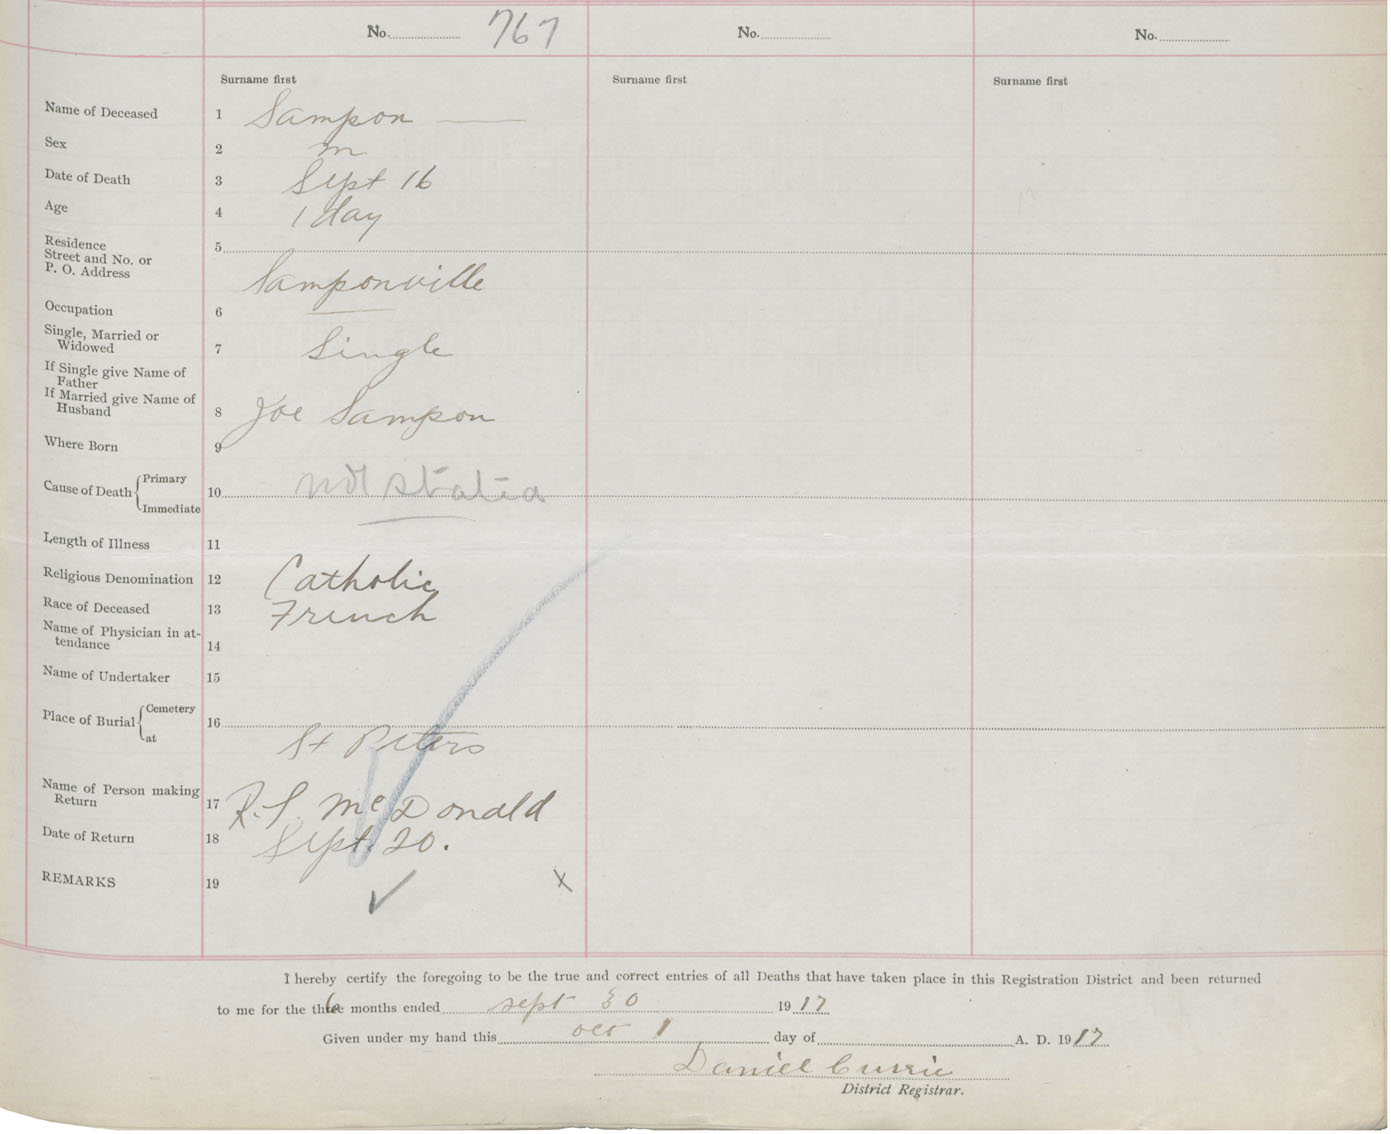 No. 767 No. No.
Surname first Surname first Surname first
Name of Deceased 1 Sampon
Sex 2 m
Date of Death 3 Sept 16
Age 4 1 day
Residence 5
Street and No. or
P. O. Address
Samponville
Occupation 6
Single, Married or
Widowed 7 Single
If Single give Name of
Father
If Married give Name of
Husband 8 Joe Sampon
Where Born 9
Cause of Death { Primary
10 not stated
Immediate
Length of Illness 11
Religious Denomination 12 Catholic
Race of Deceased 13 French
Name of Physician in at-
tendance 14
Name of Undertaker 15
Place of Burial { Cemetery 16
at St Peters
Name of Person making
Return 17 R. McDonald
Date of Return 18 Sept. 20.
REMARKS 19 x
I hereby certify the foregoing to be the true and correct entries of all Deaths that have taken place in this Registration District and been returned
to me for the months ended sept 30 1917
Given under my hand this oct 1 day of A. D. 1917
Daniel Currie
District Registrar.